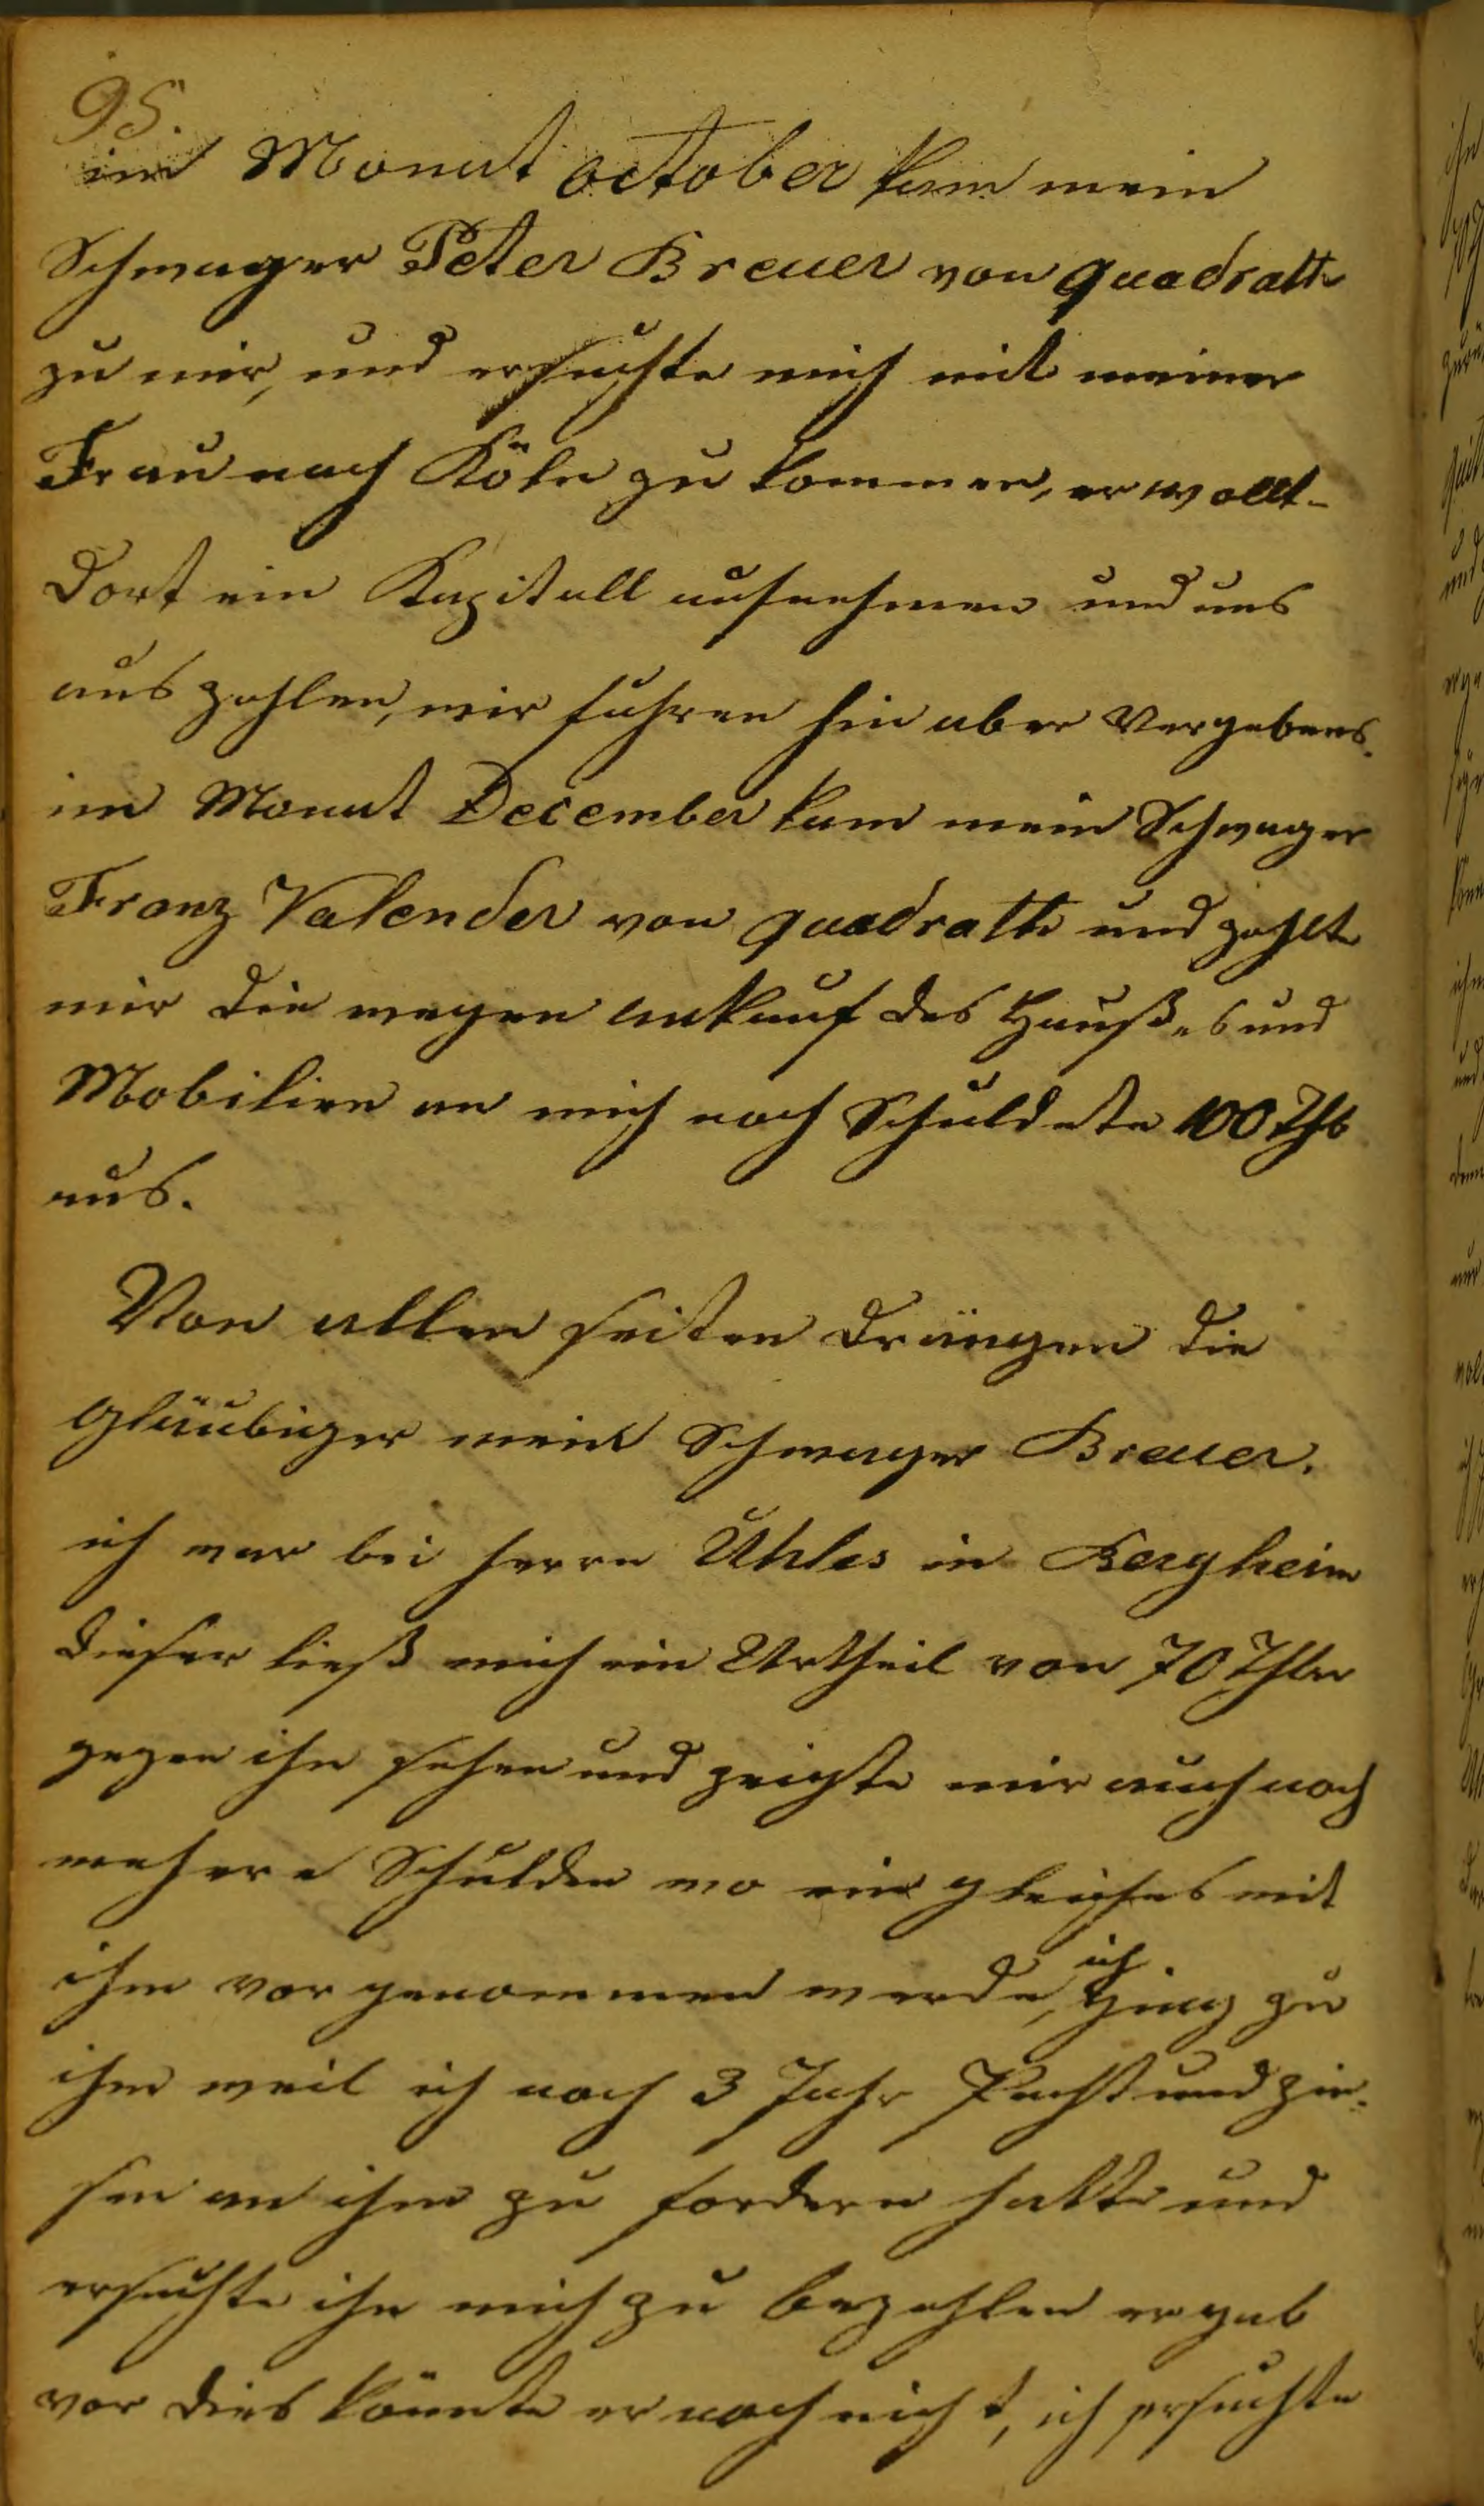 95.
im Monat october kam mein
Schwager Peter Breuer von quadrath
zu mir, und ersuchte mich mit meiner
Frau nach Köln zu kommen, er wollt-
dort ein Kapitall aufnehmen und uns
aus zahlen, wir fuhren hin aber Vergebens.
im Monat December kam mein Schwager
Franz Valender von quadrath und zahlte
mir die wegen ankauf des Haußes und
Mobilien an mich noch Schuldete 100 Thlr
aus.
Von allen seiten drängen die
gläubiger mein Schwager Breuer.
ich war bei herrn Uhles in Bergheim
dieser ließ mich ein Urtheil von 70 Thler
gegen ihn sehen und zeigte mir auch noch
mehere Schulden wo ein gleiches mit
ihm vor genommen werde, ich ging zu
ihm weil ich noch 3 Jahr Pacht und zin-
sen an ihm zu fordern hatte und
ersuchte ihn mich zu bezahlen er gab
vor dies könnte er noch nicht, ich ersuchte